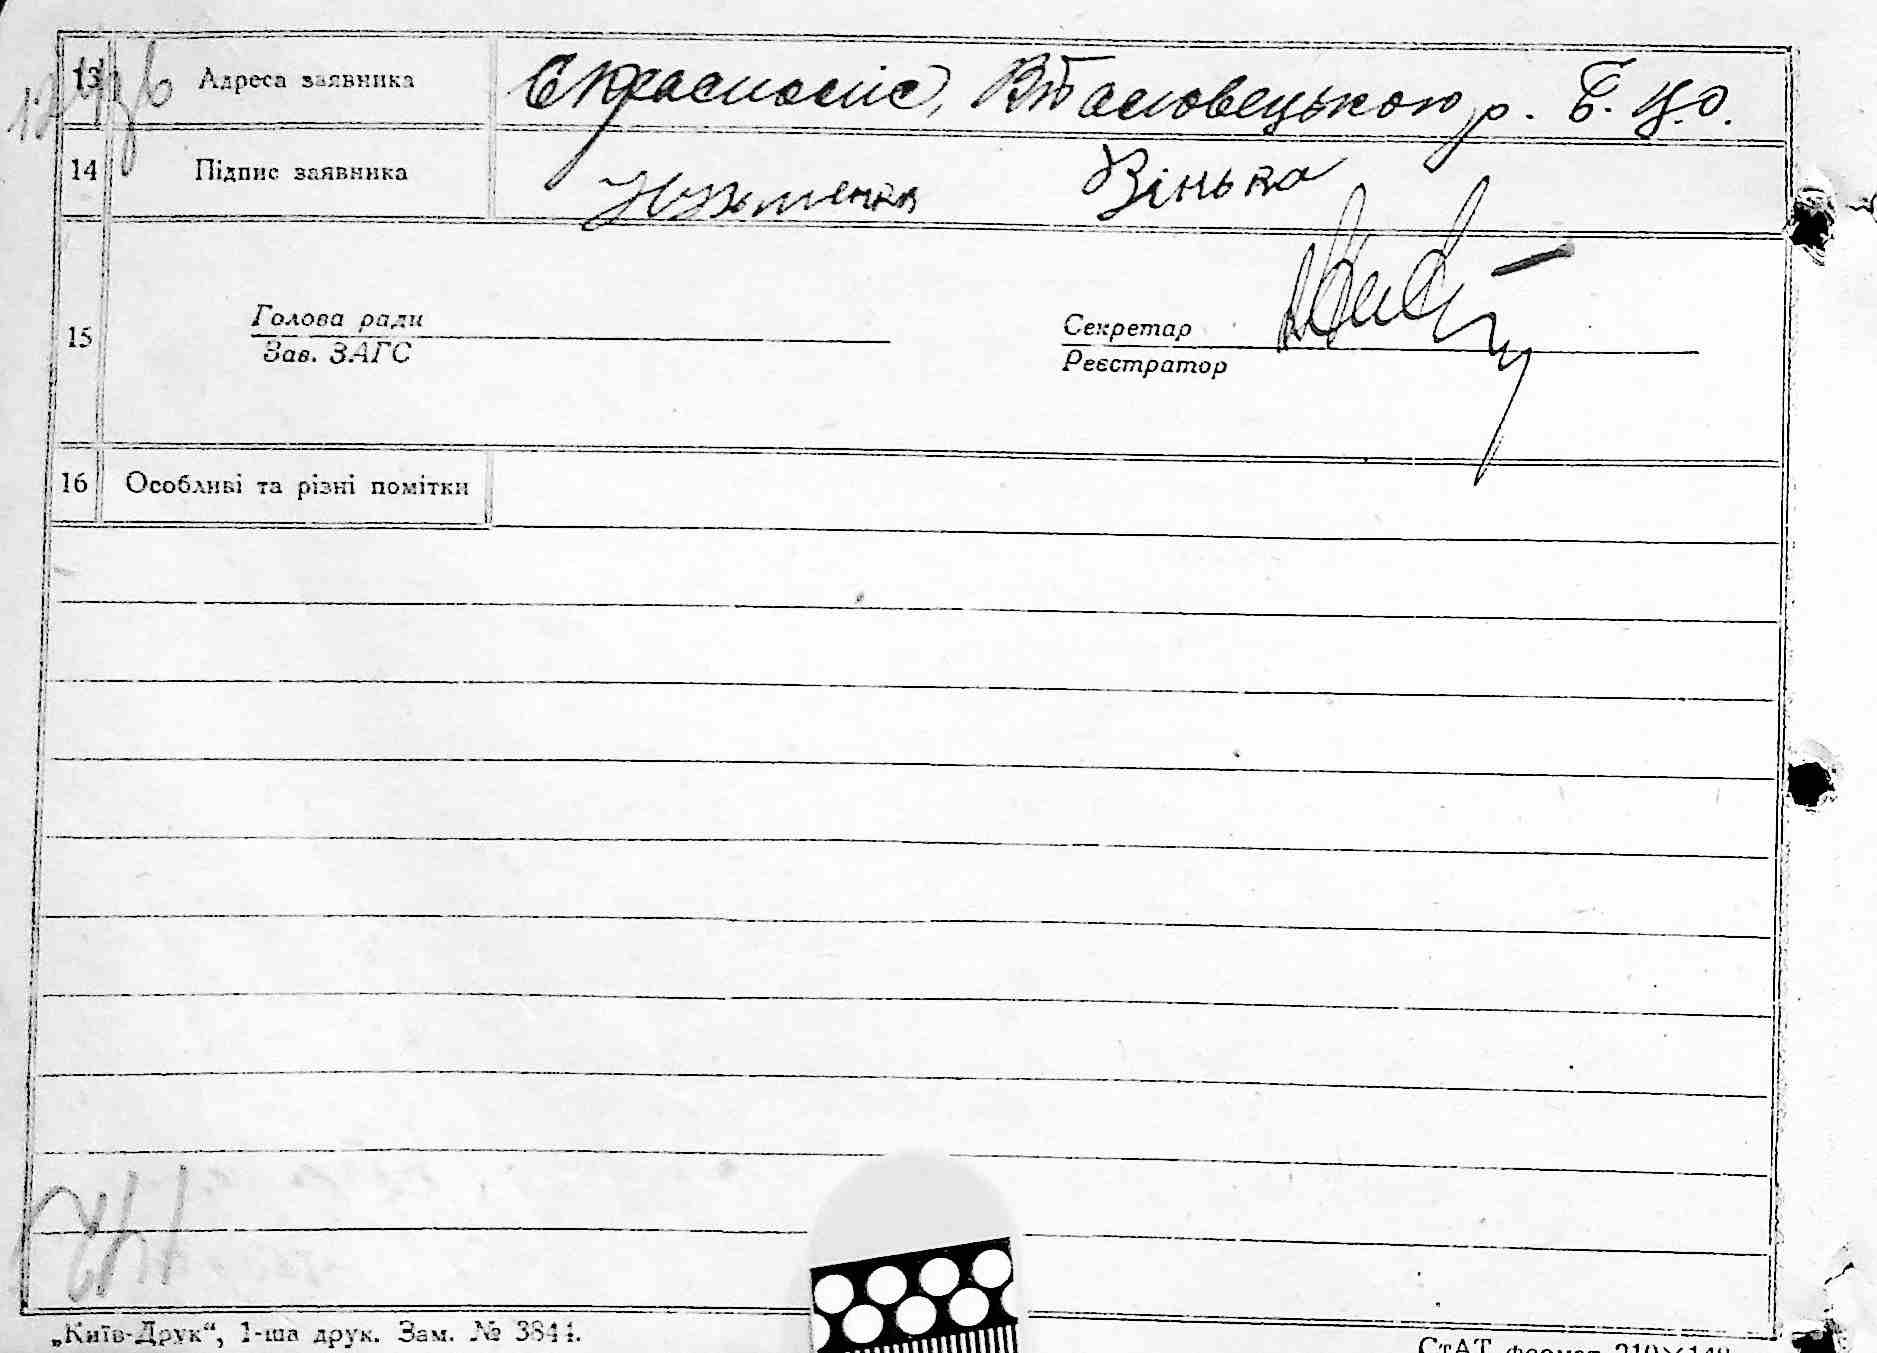 13 Адреса заявника с Красносілс, В Тасловецького р. Б. Ц. о.
14 Підпис заявника Кузьменка Вінька
15
Голова ради Секретар
Зав. ЗАГС Реєстратор
16 Особливі та різні помітки
„Київ-Друк“, 1-ша друк. Зам. № 3844.
СтАТ формат 210×148